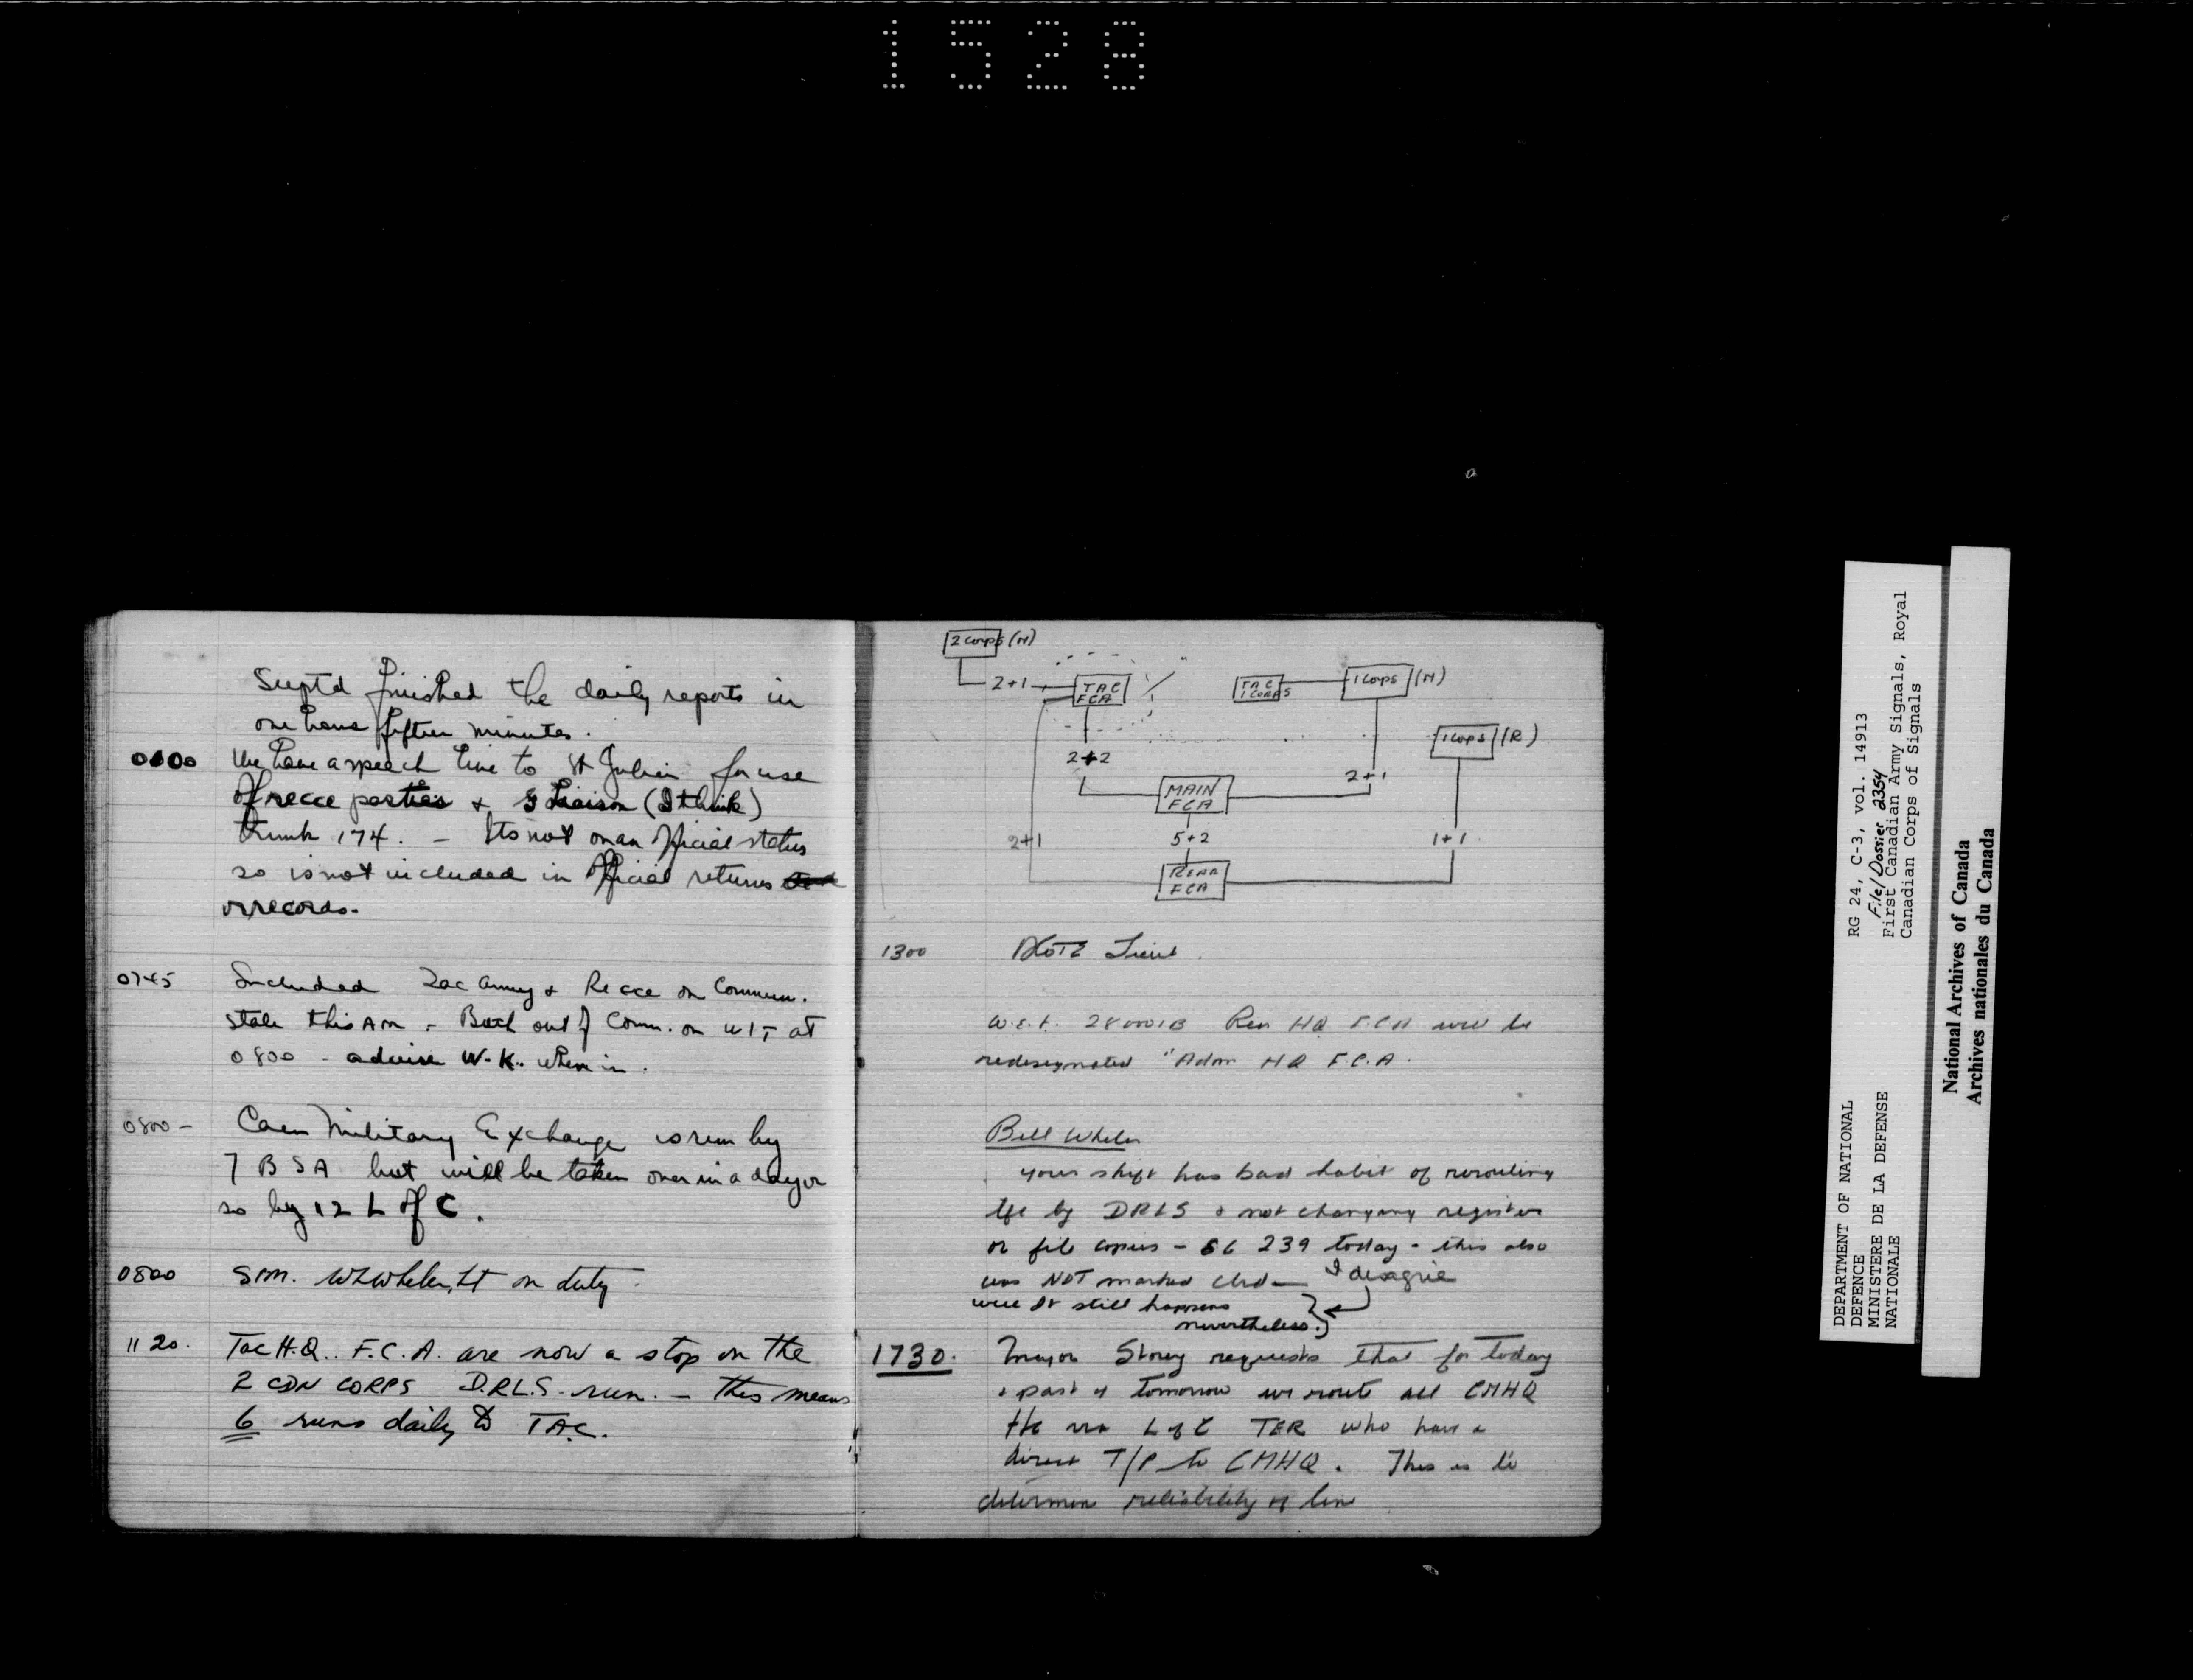 1528
finished the daily reports in
one hour fifteen minutes.
We have a speech line to St Julien for use
of recce parties & G Liaison (I think)
trunk 174. - Its not on an official status
so is not included in official returns
or records.
0745 Included Tac Army & Recce on Commun.
state this AM - Both out of Comm. on W/T at
0800 - advise W.K. when in.
0800 - Caen Military Exchange is run by
7 BSA but will be taken over in a day or
so by 12 L of C.
0800 Sgn. Wheler, Lt on duty.
1120. Tac H.Q.. F.C.A. are now a stop on the
2 CDN CORPS D.R.L.S. run. - This means
6 runs daily to TAC.
2 Corps (M)
2+1 TAC FCA
TAC 1 CORPS
1 Corps (M)
1 Corps (R)
2+2
2+1
MAIN FCA
2+1
5+2
1+1
REAR FCA
1300 NOTE
w.e.f. 280001B Rear HQ F.C.A will be
redesignated "Adm HQ F.C.A.
Bill Wheler
your shift has bad habit of rerouting
tfc by DRLS & not changing register
or file copies - 239 today - this also
was NOT marked clrd I disagree
well it still happens
nevertheless.
1730. Major Storey requests that for today
& part of tomorrow we route all CMHQ
tfc via L of C TER who have a
direct T/P to CMHQ. This is to
determine reliability of line
DEPARTMENT OF NATIONAL
DEFENCE
MINISTERE DE LA DEFENSE
NATIONALE
RG 24, C-3, vol. 14913
File/Dossier 2354
First Canadian Army Signals, Royal
Canadian Corps of Signals
National Archives of Canada
Archives nationales du Canada